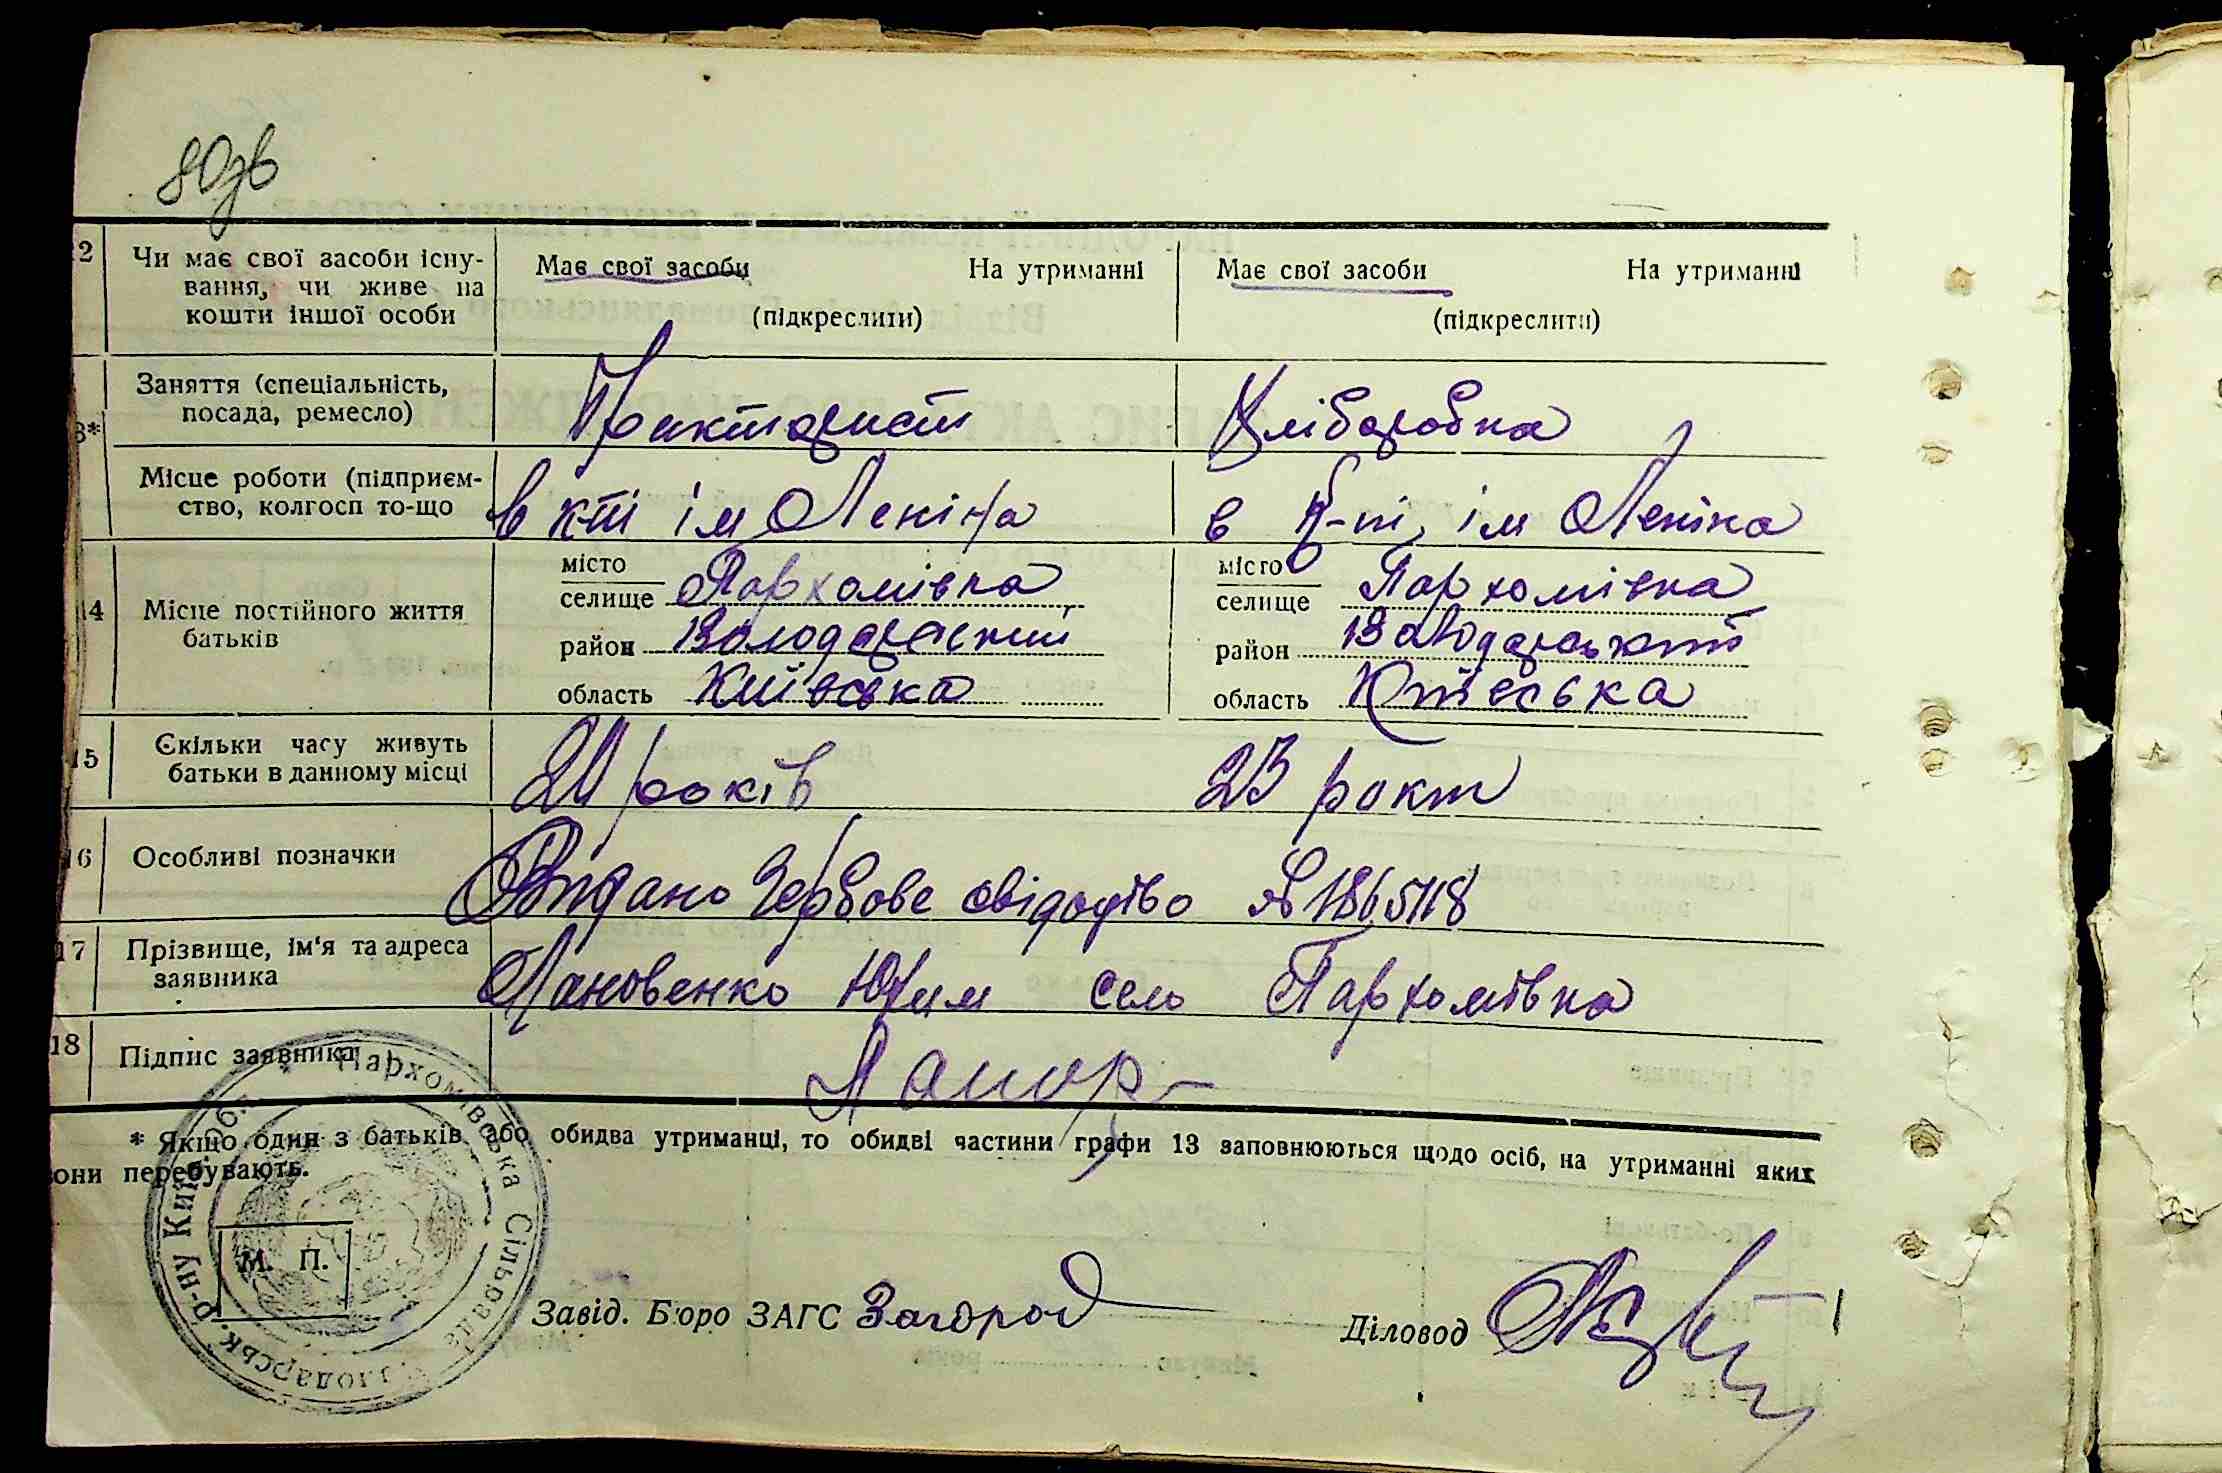 80зв
12 Чи має свої засоби існу-
вання, чи живе на
кошти іншої особи
Має свої засоби На утриманні
(підкреслити)
Має свої засоби На утриманні
(підкреслити)
13*
Заняття (спеціальність,
посада, ремесло)
Тракторист
Хліборобка
Місце роботи (підприєм-
ство, колгосп то-що
в к-ті ім Леніна
в к-ті ім Леніна
14 Місце постійного життя
батьків
місто
селище Пархомівка
район Володарський
область Київська
місто
селище Пархомівка
район Володарський
область Київська
15 Скільки часу живуть
батьки в данному місці
років
23 роки
16 Особливі позначки
Видано Гербове свідоцтво
17 Прізвище, ім'я та адреса
заявника
Лановенко Юхим село Пархомівка
18 Підпис заявника
* Якщо один з батьків або обидва утриманці, то обидві частини графи 13 заповнюються щодо осіб, на утриманні яких
вони перебувають.
Пархомівська Сільрада
Володарськ. р-ну Київ. обл.
М. П.
Завід. Бюро ЗАГС Загород
Діловод